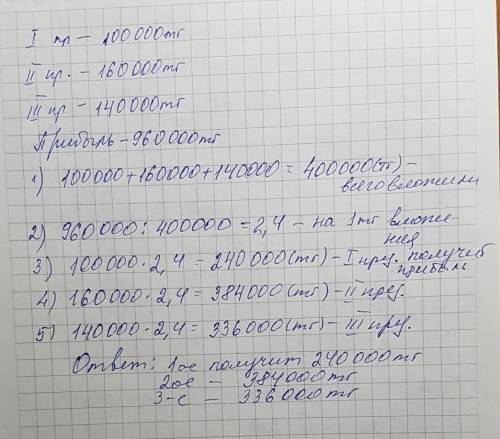 I пр — 100000тг
II пр. — 160000тг
III пр — 140000тг
Прибыль — 960000тг
1) 100000+160000+140000 = 400000(тг) —
всего вложили
2) 960000 : 400000 = 2,4 — на 1тг вложе-
ния
3) 100000 · 2,4 = 240000(тг) — I пред. получит
прибыль
4) 160000 · 2,4 = 384000(тг) — II пред.
5) 140000 · 2,4 = 336000(тг) — III пред.
Ответ: 1ое получит 240000тг
2ое — 384000тг
3-е — 336000тг